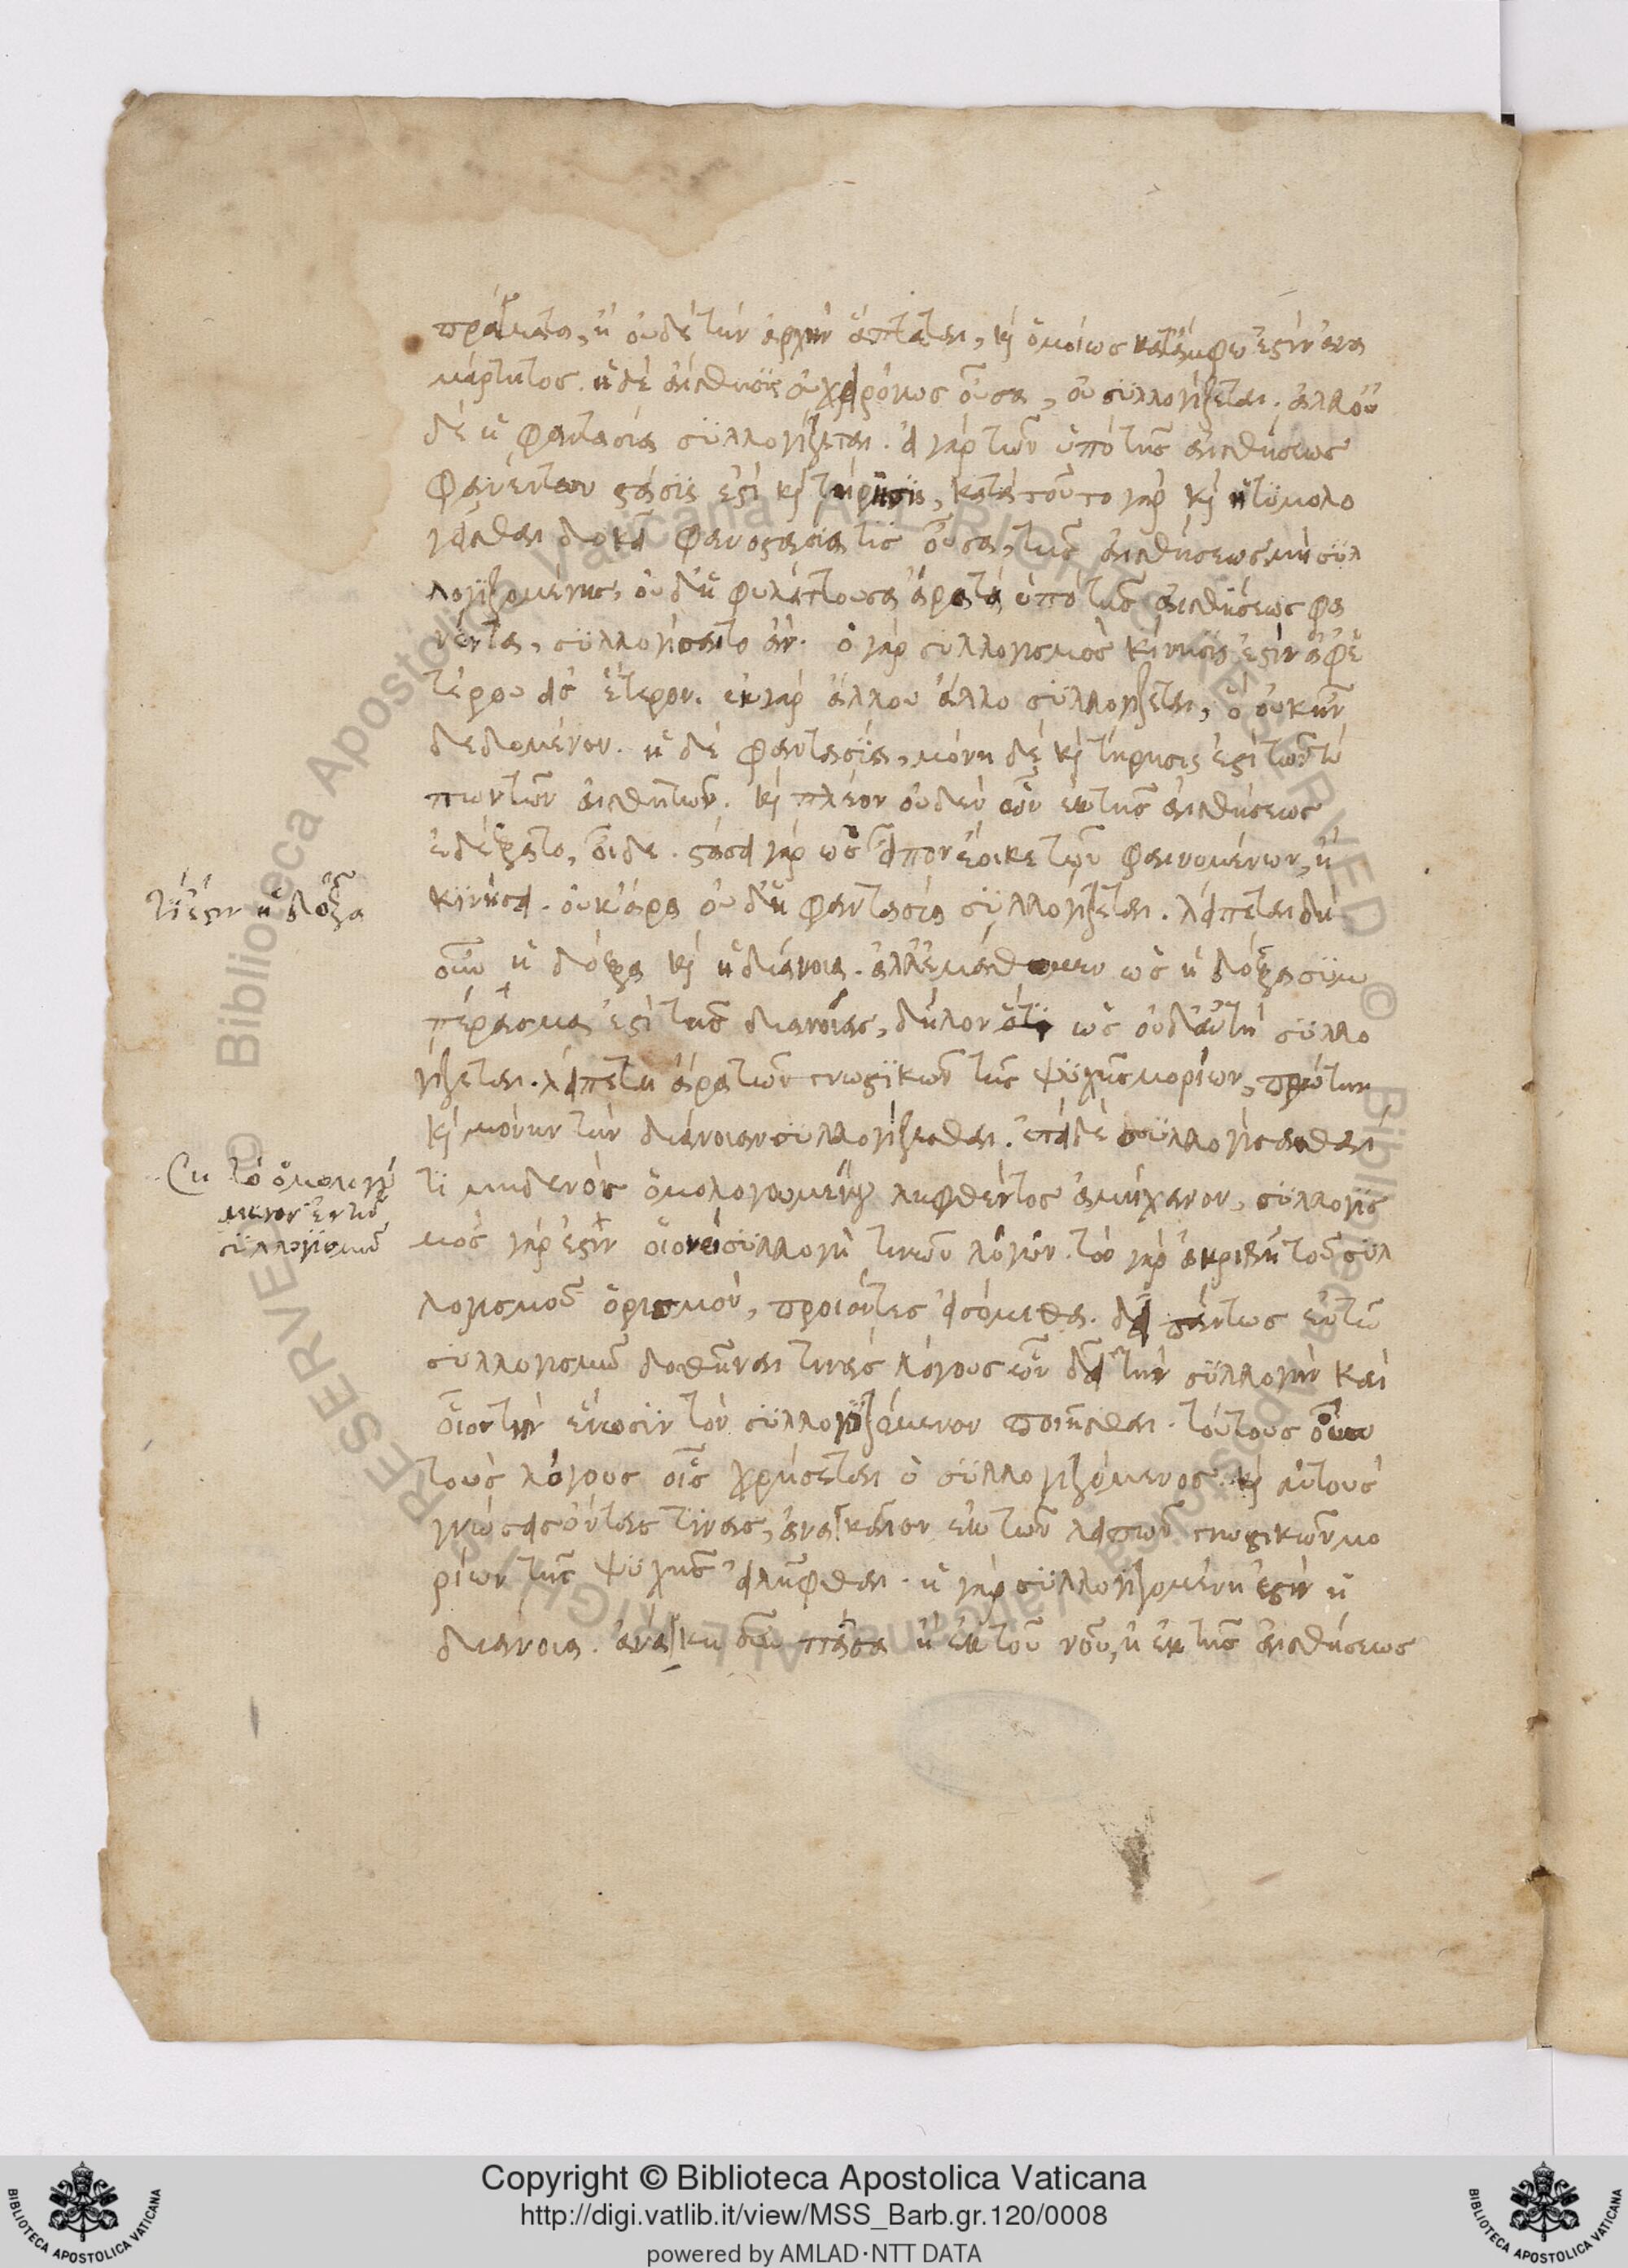 πράγματα, ἢ οὐδὲ τὴν ἀρχὴν ἅπτεται, κὶ ὁμοίως κατάμφω ἐστὶν ἀνα
μάρτητος. ἡ δὲ αἴσθησϊς οὐχ οὖσα, οὐ σϋλλογίζεται. ἀλλ οὐ
δὲ ἡ φαντασία σϋλλογίζεται. εἰ γὰρ τῶν ὑπὸ τῆς αἰσθήσεως
φανέντων στάσϊς ἐστὶ κὶ τήρησϊς, κατὰ τοῦτο γὰρ κὶ ἠτϋμολο
γεῖσθαι δοκεῖ φανοστασία τὶς οὖσα, τῆς αἰσθήσεως μὴ σϋλ
λογϊζομένης, οὐδ ἡ φυλάττουσα ἄρα τὰ ὑπὸ τῆς αἰσθήσεως φα
νέντα, σϋλλογίσαιτο ἄν. ὁ γὰρ σϋλλογισμὸς κίνησίς ἐστὶν ἀφ ἑ
τέρου εἰς ἕτερον. ἐκ γὰρ ἄλλου ἄλλο σϋλλογίζεται, ὃ οὐκ ἦν
δεδομένον. ἡ δὲ φαντασία, μόνη δὲ κὶ τήρησις ἐστὶ τῶν τϋ
πωντῶν αἰσθητῶν. κὶ πλέον οὐδὲν ὧν ἐκ τῆς αἰσθήσεως
ἐδέξατο, οἶδε. στάσει γὰρ ὡς εἶπον ἔοικε τῶν φαινομένων, ἢ
κϊνήσει. οὐκ ἄρα οὐδ ἡ φαντασία σϋλλογίζεται. λείπεται δὴ
οὖν ἡ δόξα κὶ ἡ διάνοια. ἀλλ ἐμάθομεν ὡς ἡ δόξα σϋμ
πέρασμα ἐστὶ τῆς διανοίας, δῆλον ὅτϊ ὡς οὐδ αὕτη σϋλλο
γίζεται. λείπεται ἄρα τῶν γνωστϊκῶν τῆς ψϋχῆς μορίων, πρώτην
κὶ μόνην τὴν διάνοιαν σϋλλογίζεσθαι. ἐπεὶ δὲ σϋλλογίσασθαί
τϊ μηδενὸς ὁμολογουμένου ληφθέντος ἀμήχανον, σϋλλογϊσ
μὸς γάρ ἐστιν οἱονεὶ σϋλλογὴ τινῶν λόγων. τὸν γὰρ ἀκριβῆ τοῦ σϋλ
λογισμοῦ ὁρισμὸν, προϊόντες εἰσόμεθα. δεῖ πάντως ἐν τῶ
σϋλλογισμῶ δοθῆναι τινὰς λόγους ὧν δεῖ τὴν σϋλλογὴν καὶ
οἷον τὴν ἕνωσϊν τὸν σϋλλογϊζόμενον ποιῆσθαι. τούτους οὖν
τοὺς λόγους οἷς χρήσεται ὁ σϋλλογιζόμενος κὶ αὐτοὺς
γνώσεις ὄντας τϊνας, ἀναγκαῖον ἐκ τῶν λοιπῶν γνωστικῶν μο
ρίων τῆς ψϋχῆς εἰλῆφθαι. ἡ γὰρ σϋλλογιζομένη ἐστὶν ἡ
διάνοια. ἀνάγκη οὖν πᾶσα ἢ ἐκ τοῦ νοῦ, ἢ ἐκ τῆς αἰσθήσεως
τί ἐστιν ἡ δόξα
Ση τὸ ὁμολογού
μενον ἐν τῶ
σϋλλογισμῶ
Copyright © Biblioteca Apostolica Vaticana
http://digi.vatlib.it/view/MSS_Barb.gr.120/0008
powered by AMLAD·NTT DATA
BIBLIOTECA APOSTOLICA VATICANA
BIBLIOTECA APOSTOLICA VATICANA